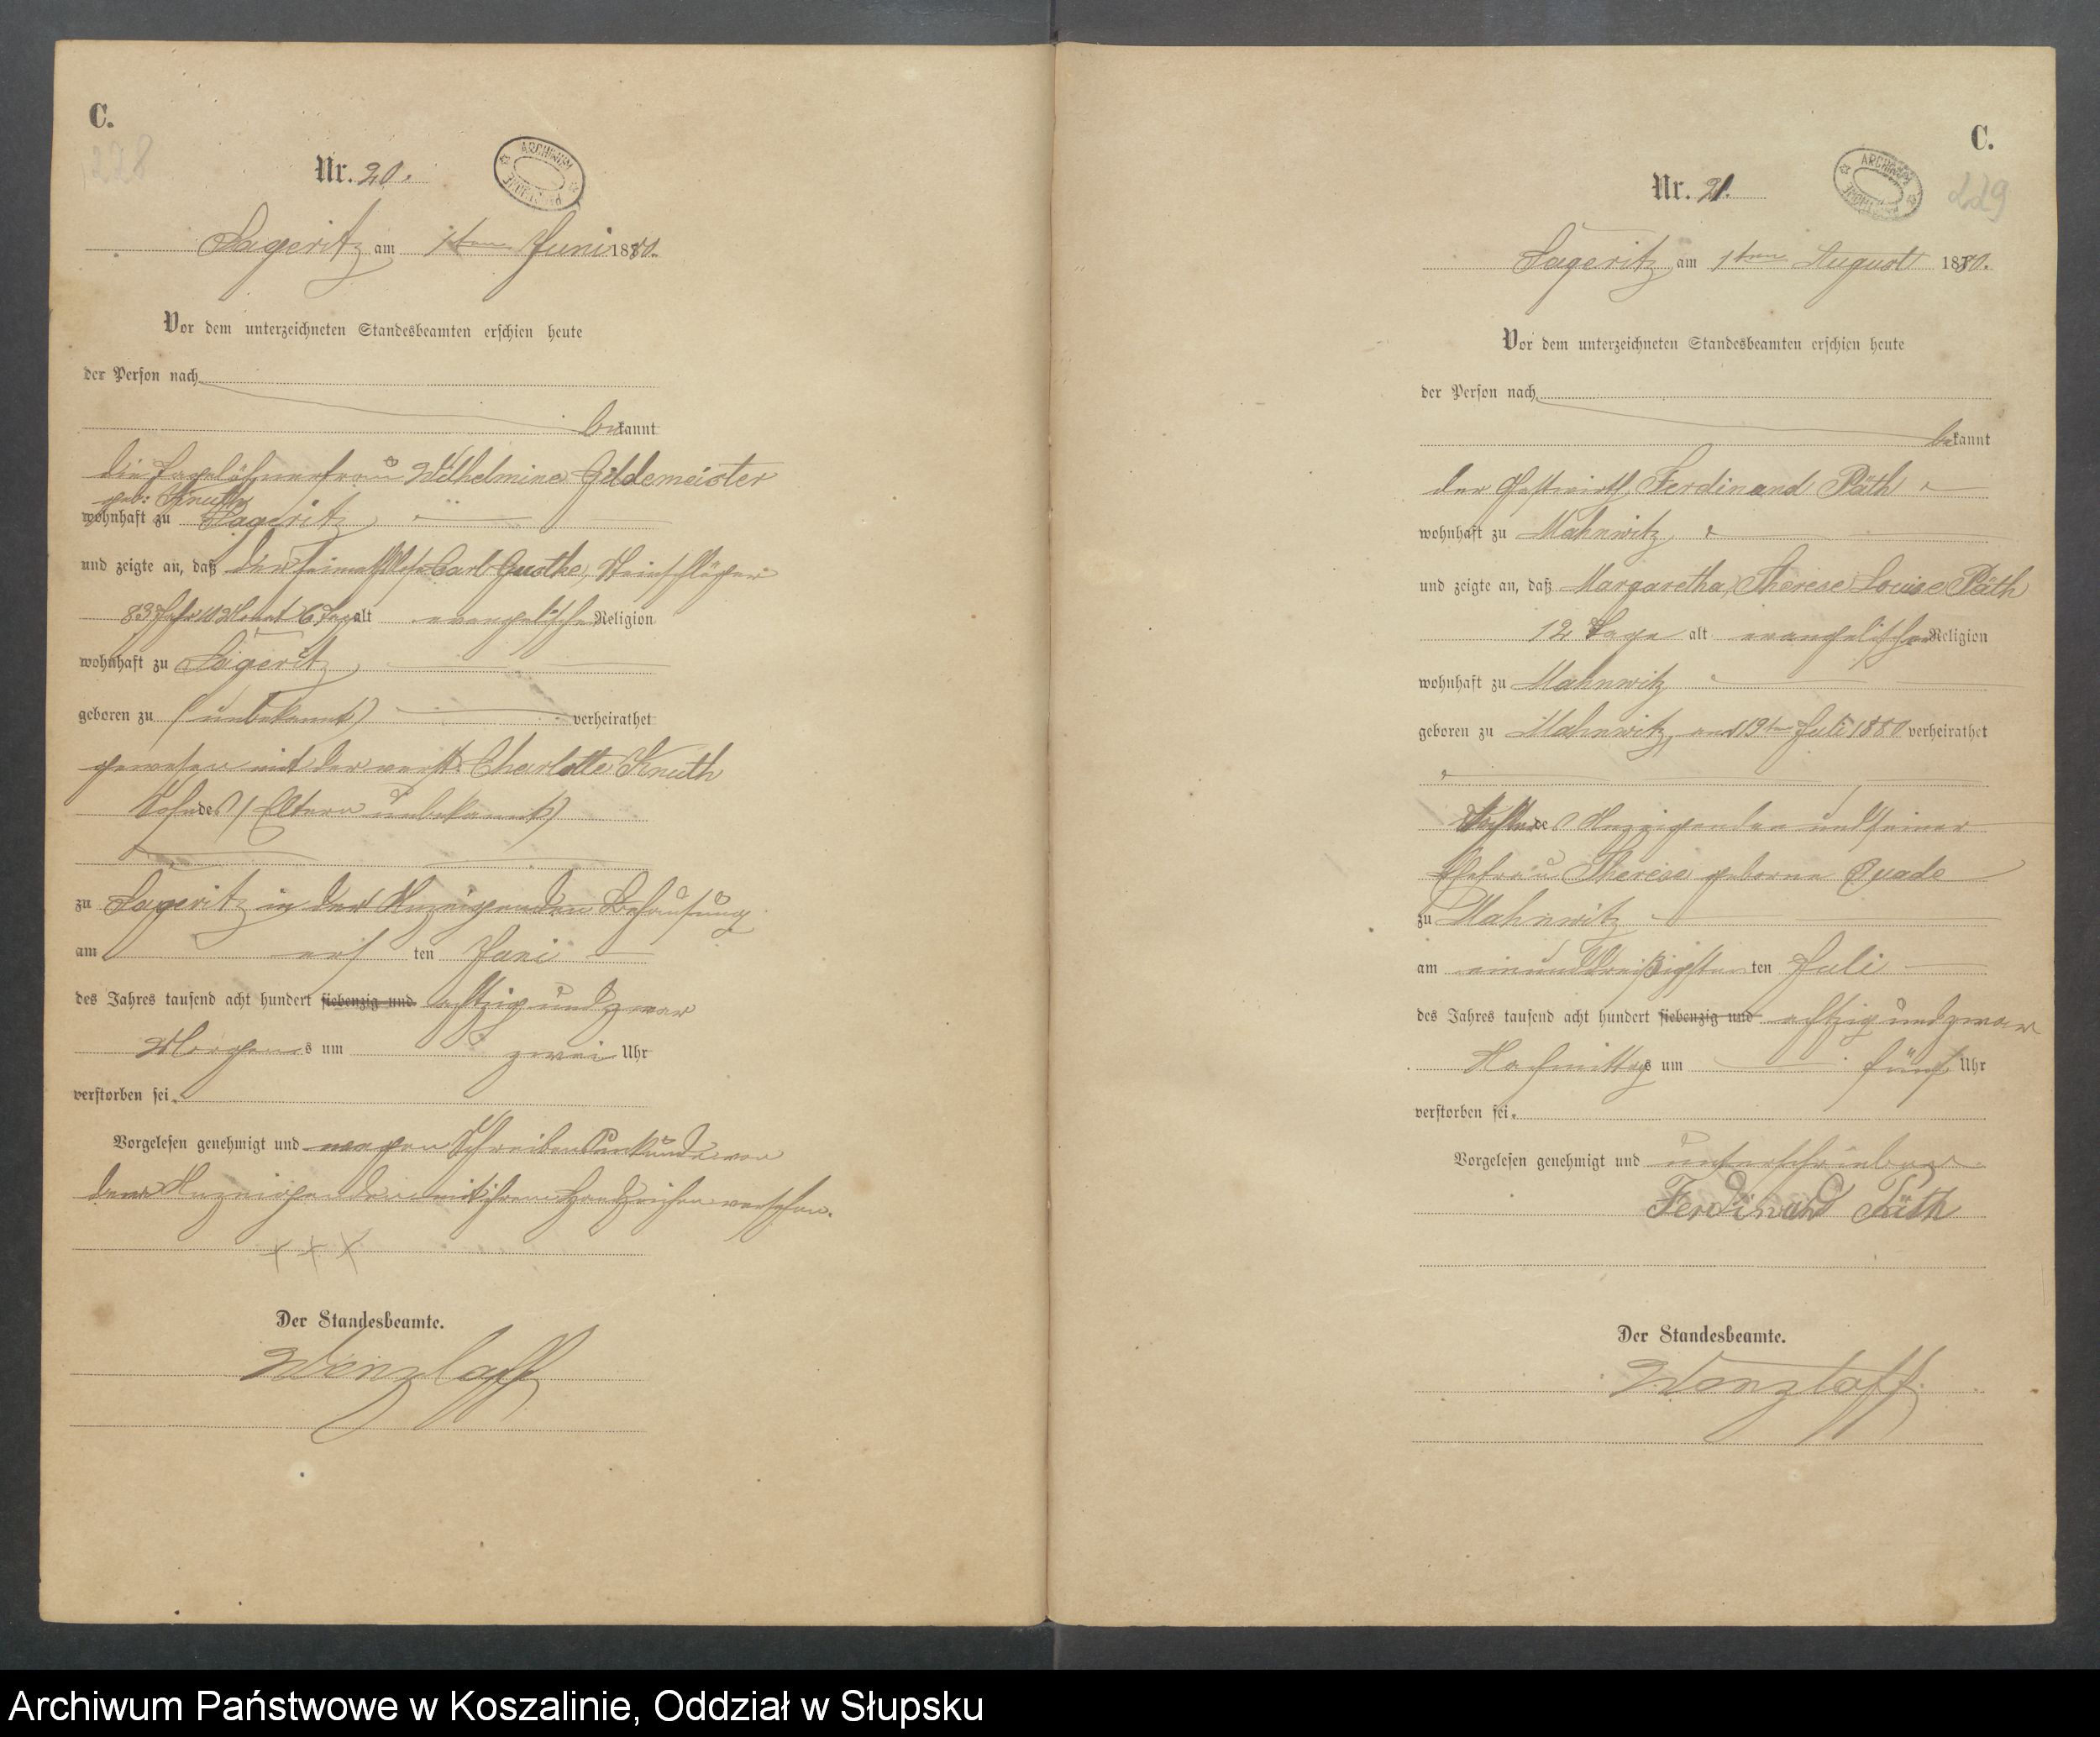 C.
228
Nr. 20.
ARCHIWUM PAŃSTWOWE
Sageritz am 1ten Juni 1880.
Vor dem unterzeichneten Standesbeamten erschien heute
der Person nach
bekannt
die Tagelöhnerfrau Wilhelmine Gildemeister
geb: Knuth
wohnhaft zu Sageritz
und zeigte an, daß der Carl Gustke,
83 Jahr 10 Monat 6 Tage alt evangelischer Religion
wohnhaft zu Sageritz
geboren zu (unbekannt) verheirathet
gewesen mit der verst. Charlotte Knuth
Sohn des (Eltern unbekannt)
zu Sageritz in der Anzeigenden Behausung
am ers ten Juni
des Jahres tausend acht hundert siebenzig und achtzig und zwar
Morgens um zwei Uhr
verstorben sei.
Vorgelesen genehmigt und wegen Schreibensunkunde von
der Anzeigenden mit ihrem Handzeichen versehen.
+ + +
Der Standesbeamte.
Wenzlaff
C.
229
Nr. 21.
ARCHIWUM PAŃSTWOWE
Sageritz am 1ten August 1880.
Vor dem unterzeichneten Standesbeamten erschien heute
der Person nach
bekannt
der Gastwirth Ferdinand Päth
wohnhaft zu Mahnwitz
und zeigte an, daß Margaretha Therese Louise Päth
12 Tage alt evangelischer Religion
wohnhaft zu Mahnwitz
geboren zu Mahnwitz, am 19ten Juli 1880 verheirathet
Tochter des Anzeigenden und seiner
Ehefrau Therese geborne Quade
zu Mahnwitz
am einunddreißigsten ten Juli
des Jahres tausend acht hundert siebenzig und achtzig und zwar
Nachmittags um fünf Uhr
verstorben sei.
Vorgelesen genehmigt und unterschrieben
Ferdinand Päth
Der Standesbeamte.
Wenzlaff
Archiwum Państwowe w Koszalinie, Oddział w Słupsku